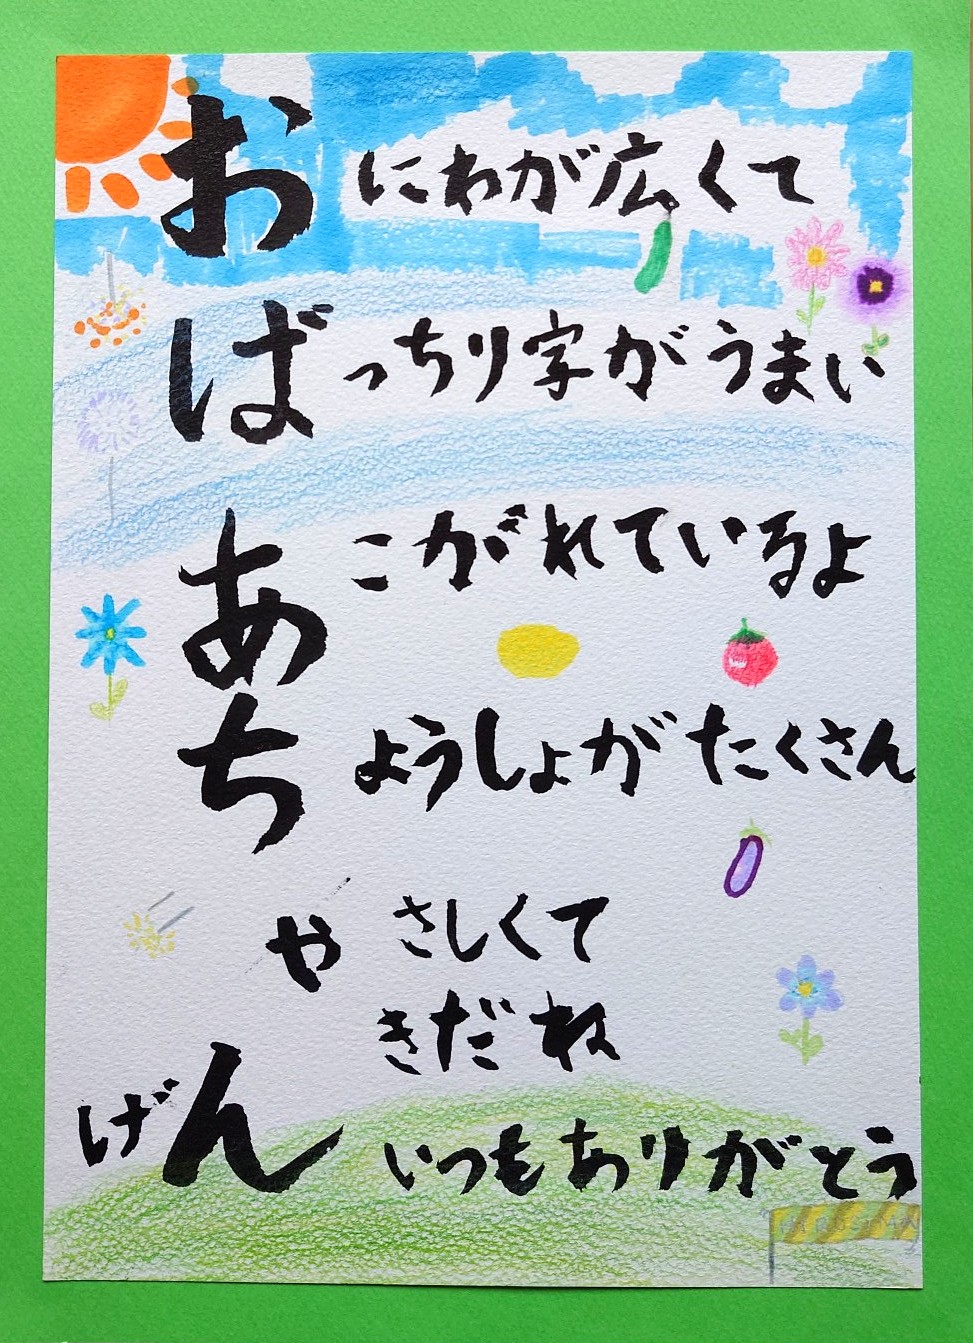 おにわが広くて
ばっちり字がうまい
あこがれているよ
ちょうしょがたくさん
やさしくて
きだね
げんいつもありがとう